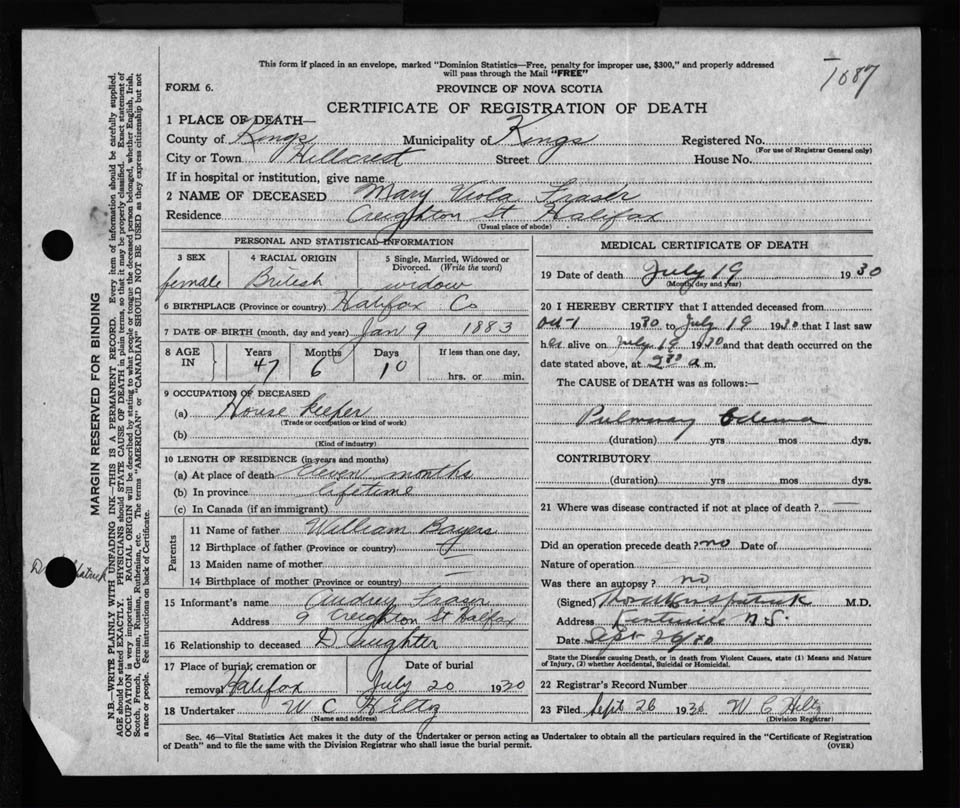 1687
This form if placed in an envelope, marked "Dominion Statistics—Free, penalty for improper use, $300," and properly addressed
will pass through the Mail "FREE"
FORM 6.
PROVINCE OF NOVA SCOTIA
CERTIFICATE OF REGISTRATION OF DEATH
1 PLACE OF DEATH—
County of Kings Municipality of Kings Registered No.
(For use of Registrar General only)
City or Town Hillcrest Street House No.
If in hospital or institution, give name
2 NAME OF DECEASED Mary Viola Fraser
Residence Creighton St Halifax
(Usual place of abode)
PERSONAL AND STATISTICAL INFORMATION
3 SEX 4 RACIAL ORIGIN 5 Single, Married, Widowed or
Divorced. (Write the word)
female British widow
6 BIRTHPLACE (Province or country) Halifax Co
7 DATE OF BIRTH (month, day and year) Jan 9 1883
8 AGE IN Years Months Days If less than one day,
47 6 10 hrs. or min.
9 OCCUPATION OF DECEASED
(a) House keeper
(Trade or occupation or kind of work)
(b)
(Kind of industry)
10 LENGTH OF RESIDENCE (in years and months)
(a) At place of death Eleven months
(b) In province lifetime
(c) In Canada (if an immigrant)
Parents
11 Name of father William Bayers
12 Birthplace of father (Province or country) —
13 Maiden name of mother —
14 Birthplace of mother (Province or country) —
15 Informant's name Audrey Fraser
Address 9 Creighton St Halifax
16 Relationship to deceased Daughter
17 Place of burial, cremation or Date of burial
removal Halifax July 20 1930
18 Undertaker W C Hiltz
(Name and address)
MEDICAL CERTIFICATE OF DEATH
19 Date of death July 19 1930
(Month, day and year)
20 I HEREBY CERTIFY that I attended deceased from
Oct 1 1930 to July 19 1930 that I last saw
her alive on July 19 1930 and that death occurred on the
date stated above, at 2 30 a m.
The CAUSE OF DEATH was as follows:—
Pulmonary Edema
(duration) yrs mos dys.
CONTRIBUTORY
(duration) yrs mos dys.
21 Where was disease contracted if not at place of death? —
Did an operation precede death? no Date of
Nature of operation
Was there an autopsy? no
(Signed) M.D.
Address Kentville N.S.
Date Sept 26/30
State the Disease causing Death, or in death from Violent Causes, state (1) Means and Nature
of Injury, (2) whether Accidental, Suicidal or Homicidal.
22 Registrar's Record Number
23 Filed Sept 26 1930 W C Hiltz
(Division Registrar)
Sec. 46—Vital Statistics Act makes it the duty of the Undertaker or person acting as Undertaker to obtain all the particulars required in the "Certificate of Registration
of Death" and to file the same with the Division Registrar who shall issue the burial permit.
(OVER)
MARGIN RESERVED FOR BINDING
N.B.—WRITE PLAINLY WITH UNFADING INK—THIS IS A PERMANENT RECORD. Every item of information should be carefully supplied.
AGE should be stated EXACTLY. PHYSICIANS should STATE CAUSE OF DEATH in plain terms, so that it may be properly classified. Exact statement of
OCCUPATION is very important. RACIAL ORIGIN will be described by stating to what people or tongue the deceased person belonged, whether English, Irish,
Scotch, French, German, Russian, Ruthenian, etc. The terms "AMERICAN" or "CANADIAN" SHOULD NOT BE USED as they express citizenship but not
a race or people. See instructions on back of Certificate.